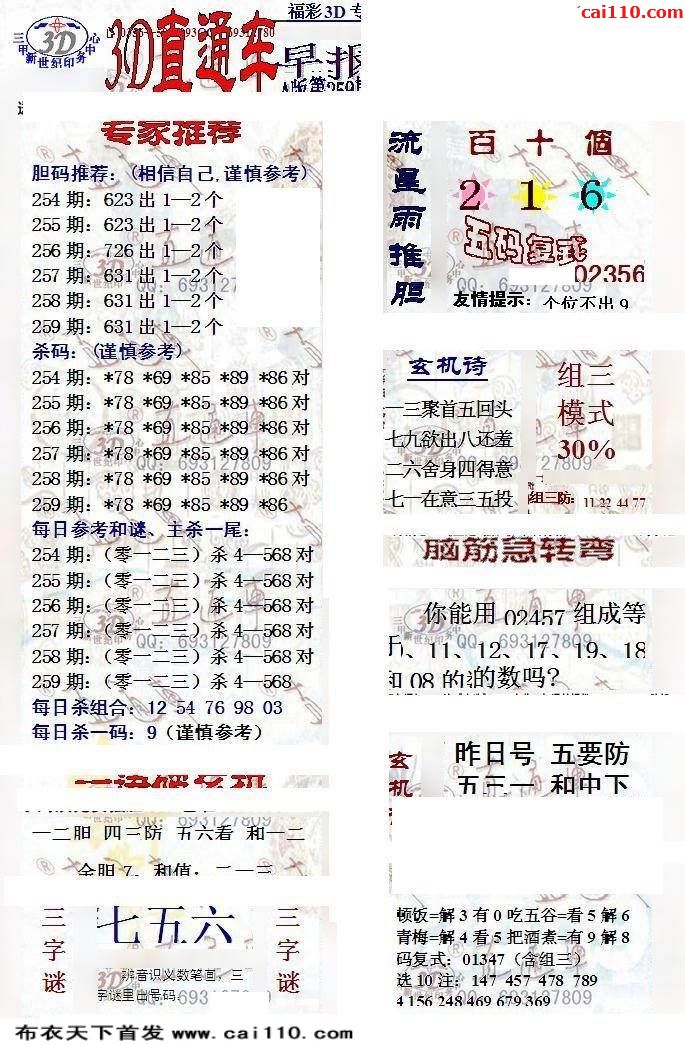 福彩3D专
cai110.com
3D直通车
早报
专家推荐
胆码推荐：(相信自己,谨慎参考)
254期：623出1—2个
255期：623出1—2个
256期：726出1—2个
257期：631出1—2个
258期：631出1—2个
259期：631出1—2个
杀码：(谨慎参考)
254期：*78 *69 *85 *89 *86对
255期：*78 *69 *85 *89 *86对
256期：*78 *69 *85 *89 *86对
257期：*78 *69 *85 *89 *86对
258期：*78 *69 *85 *89 *86对
259期：*78 *69 *85 *89 *86
每日参考和谜、主杀一尾：
254期：（零一二三）杀4—568对
255期：（零一二三）杀4—568对
256期：（零一二三）杀4—568对
257期：（零一二三）杀4—568对
258期：（零一二三）杀4—568对
259期：（零一二三）杀4—568
每日杀组合：12 54 76 98 03
每日杀一码：9（谨慎参考）
一二胆 四三防 五六看 和一二
金胆7、和值：二一三
三字谜
七五六
三字谜
辨音识义数笔画，三
字谜里出号码.
流星雨推胆
百十個
2 1 6
五码复式
02356
友情提示：个位不出9
玄机诗
一三聚首五回头
七九欲出八还羞
二六舍身四得意
七一在意三五投
组三
模式
30%
组三防：11.22 44 77
脑筋急转弯
你能用02457组成等
、11、12、17、19、18
和08的的数吗?
玄机
昨日号 五要防
五三一 和中下
顿饭=解3有0吃五谷=看5解6
青梅=解4看5把酒煮=有9解8
码复式：01347（含组三）
选10注：147 457 478 789
4156 248 469 679 369
布衣天下首发 www.cai110.com